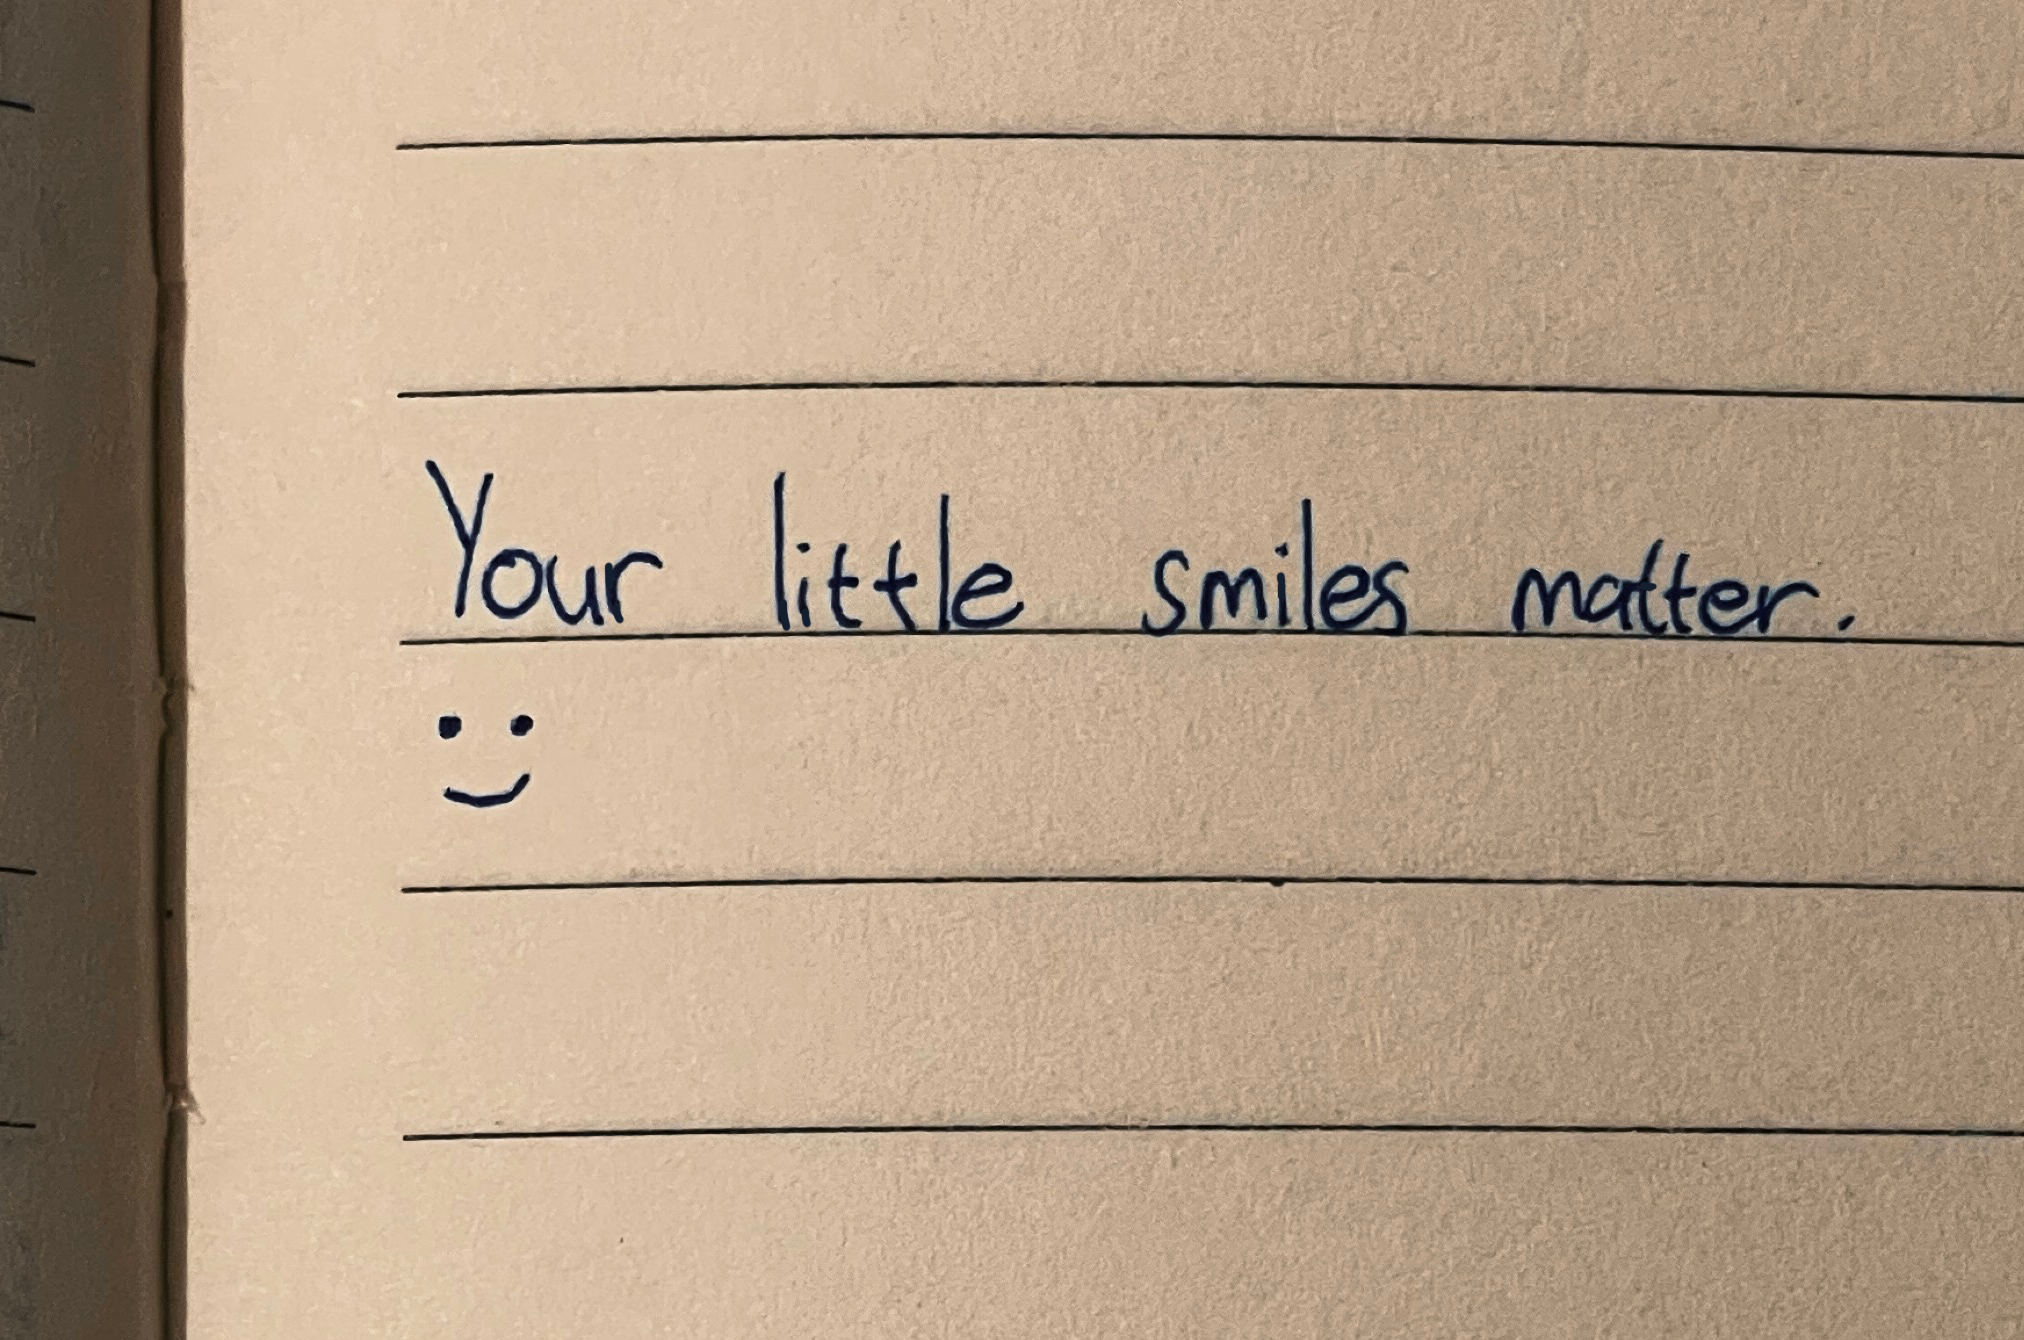 Your little smiles matter.